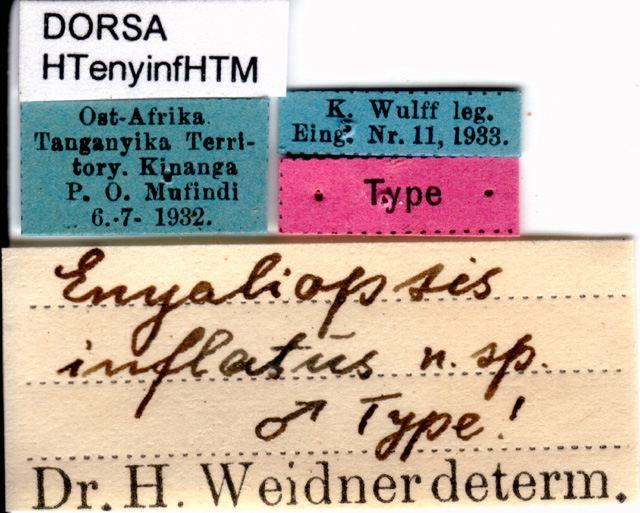 DORSA
HTenyinfHTM
Ost-Afrika
Tanganyika Terri-
tory. Kinanga
P. O. Mufindi
6.-7- 1932.
K. Wulff leg.
Eing. Nr. 11, 1933.
Type
Enyaliopsis
inflatus n. sp.
♂ Type!
Dr. H. Weidner determ.